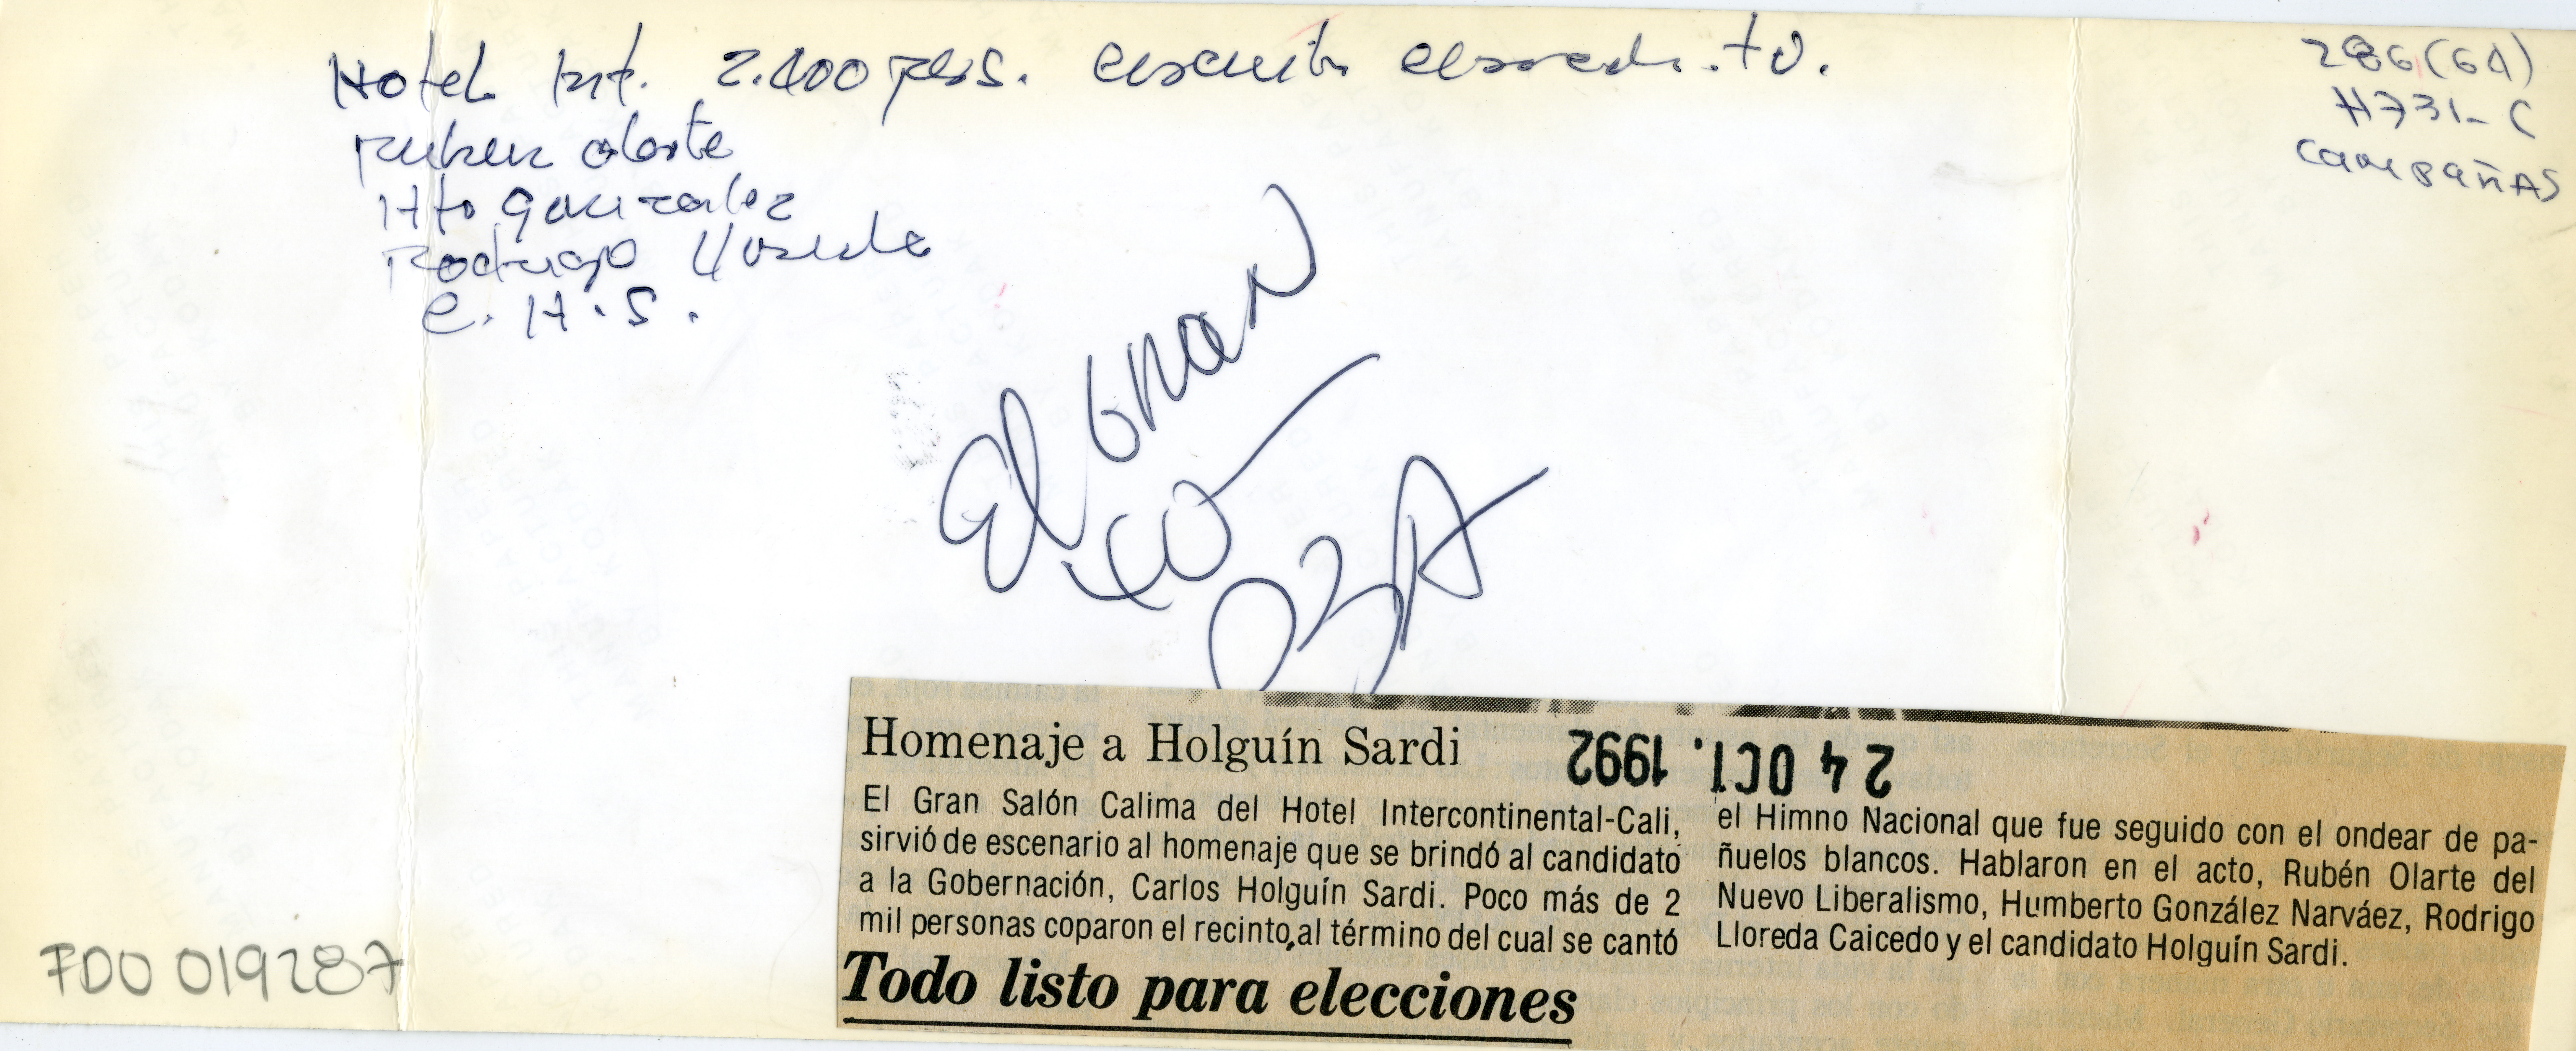 Hotel Int. 2.400 pers.
Ruben Olarte
Hto Gonzalez
Rodrigo Lloreda
C. H. S.
286(64)
H731-C
CAMPAÑAS
El GRAN
FDO 019287
Homenaje a Holguín Sardi
24 OCT. 1992
El Gran Salón Calima del Hotel Intercontinental-Cali,
sirvió de escenario al homenaje que se brindó al candidato
a la Gobernación, Carlos Holguín Sardi. Poco más de 2
mil personas coparon el recinto, al término del cual se cantó
el Himno Nacional que fue seguido con el ondear de pa-
ñuelos blancos. Hablaron en el acto, Rubén Olarte del
Nuevo Liberalismo, Humberto González Narváez, Rodrigo
Lloreda Caicedo y el candidato Holguín Sardi.
Todo listo para elecciones